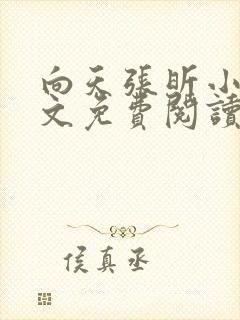 向天張昕小
文免費閱讀
侯真丞